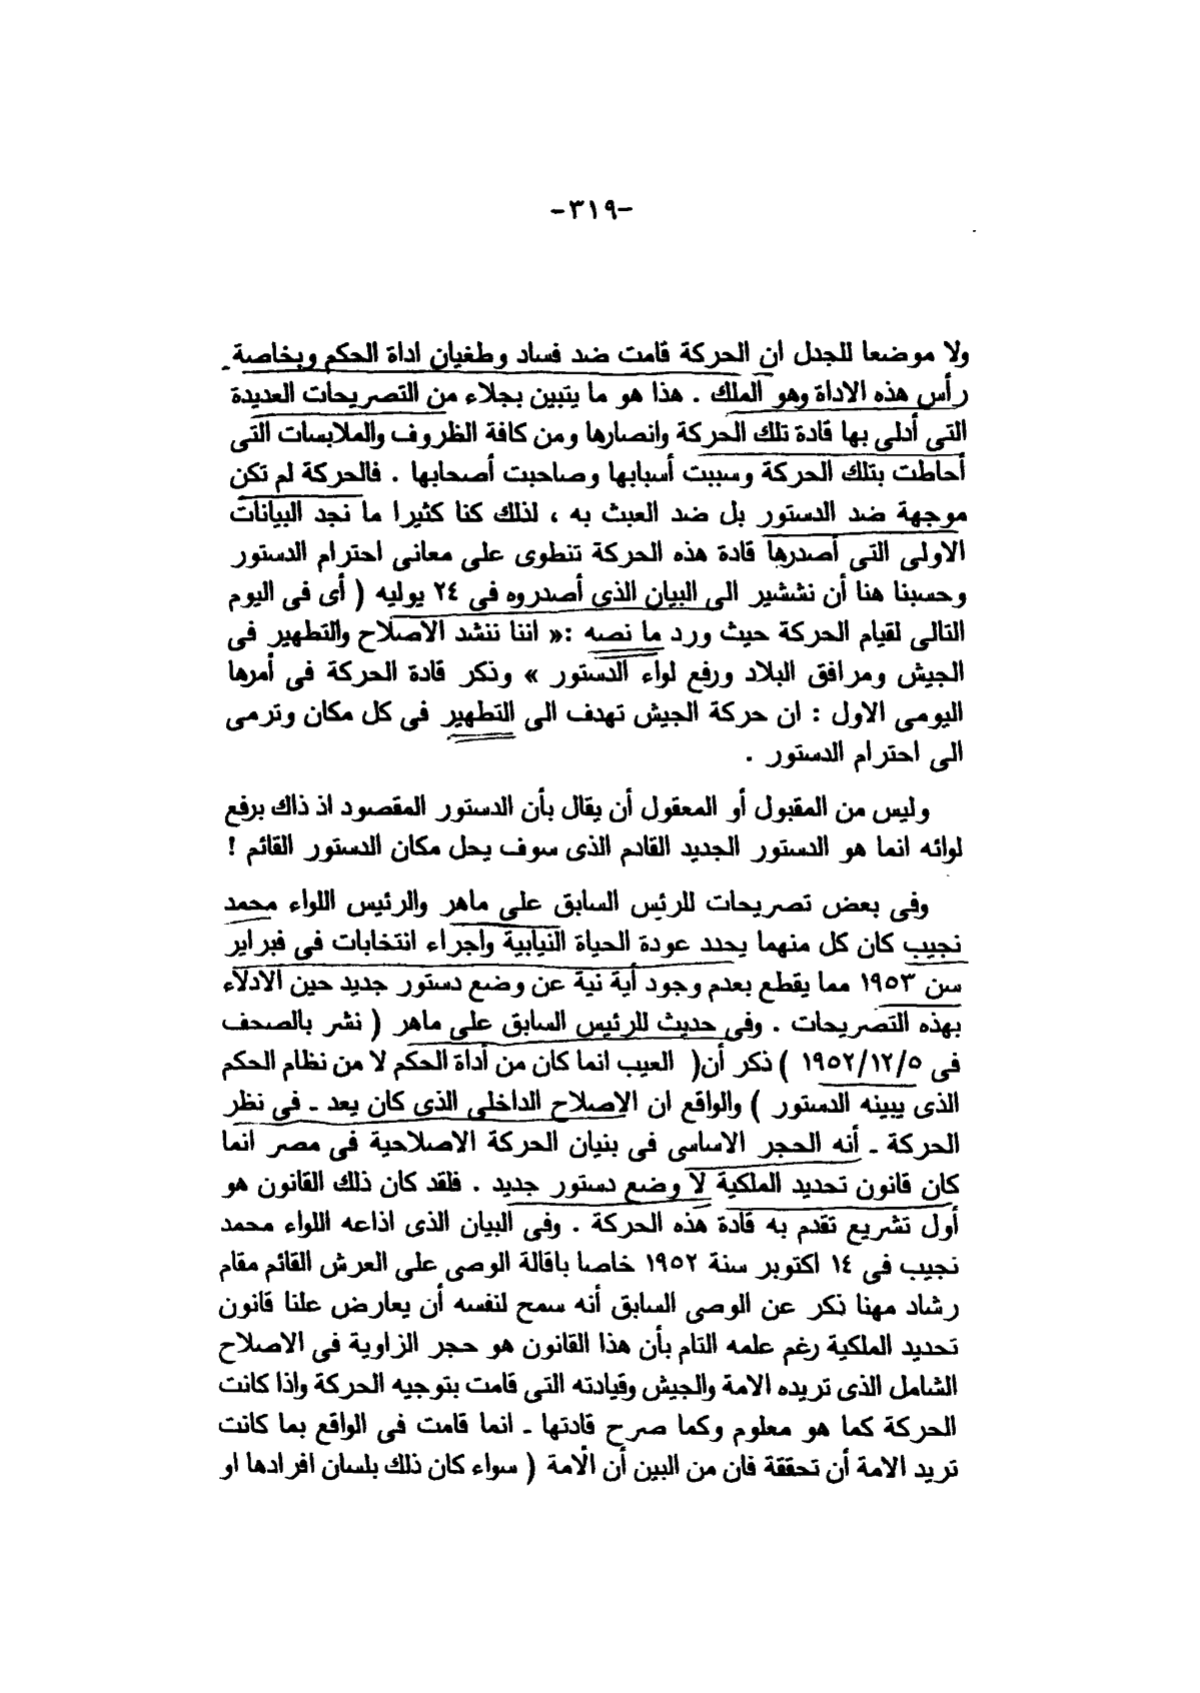 -٣١٩-
ولا موضعا للجدل ان الحركة قامت ضد فساد وطغيان اداة الحكم وبخاصة
رأس هذه الاداة وهو الملك . هذا هو ما يتبين بجلاء من التصريحات العديدة
التى أدلى بها قادة تلك الحركة وانصارها ومن كافة الظروف والملابسات التى
أحاطت بتلك الحركة وسببت أسبابها وصاحبت أصحابها . فالحركة لم تكن
موجهة ضد الدستور بل ضد العبث به ، لذلك كنا كثيرا ما نجد البيانات
الاولى التى أصدرها قادة هذه الحركة تنطوى على معانى احترام الدستور
وحسبنا هنا أن نششير الى البيان الذى أصدروه فى ٢٤ يوليه ( أى فى اليوم
التالى لقيام الحركة حيث ورد ما نصه :« اننا ننشد الاصلاح والتطهير فى
الجيش ومرافق البلاد ورفع لواء الدستور » وذكر قادة الحركة فى أمرها
اليومى الاول : ان حركة الجيش تهدف الى التطهير فى كل مكان وترمى
الى احترام الدستور .
وليس من المقبول أو المعقول أن يقال بأن الدستور المقصود اذ ذاك برفع
لوائه انما هو الدستور الجديد القادم الذى سوف يحل مكان الدستور القائم !
وفى بعض تصريحات للرئس السابق على ماهر والرئيس اللواء محمد
نجيب كان كل منهما يحدد عودة الحياة النيابية واجراء انتخابات فى فبراير
سن ١٩٥٣ مما يقطع بعدم وجود أية نية عن وضع دستور جديد حين الادلاء
بهذه التصريحات . وفى حديث للرئيس السابق على ماهر ( نشر بالصحف
فى ١٩٥٢/١٢/٥ ) ذكر أن( العيب انما كان من أداة الحكم لا من نظام الحكم
الذى يبينه الدستور ) والواقع ان الاصلاح الداخلى الذى كان يعد ـ فى نظر
الحركة ـ أنه الحجر الاساسى فى بنيان الحركة الاصلاحية فى مصر انما
كان قانون تحديد الملكية لا وضع دستور جديد . فلقد كان ذلك القانون هو
أول تشريع تقدم به قادة هذه الحركة . وفى البيان الذى اذاعه اللواء محمد
نجيب فى ١٤ اكتوبر سنة ١٩٥٢ خاصا باقالة الوصى على العرش القائم مقام
رشاد مهنا ذكر عن الوصى السابق أنه سمح لنفسه أن يعارض علنا قانون
تحديد الملكية رغم علمه التام بأن هذا القانون هو حجر الزاوية فى الاصلاح
الشامل الذى تريده الامة والجيش وقيادته التى قامت بتوجيه الحركة واذا كانت
الحركة كما هو معلوم وكما صرح قادتها ـ انما قامت فى الواقع بما كانت
تريد الامة أن تحققة فان من البين أن الأمة ( سواء كان ذلك بلسان افرادها او